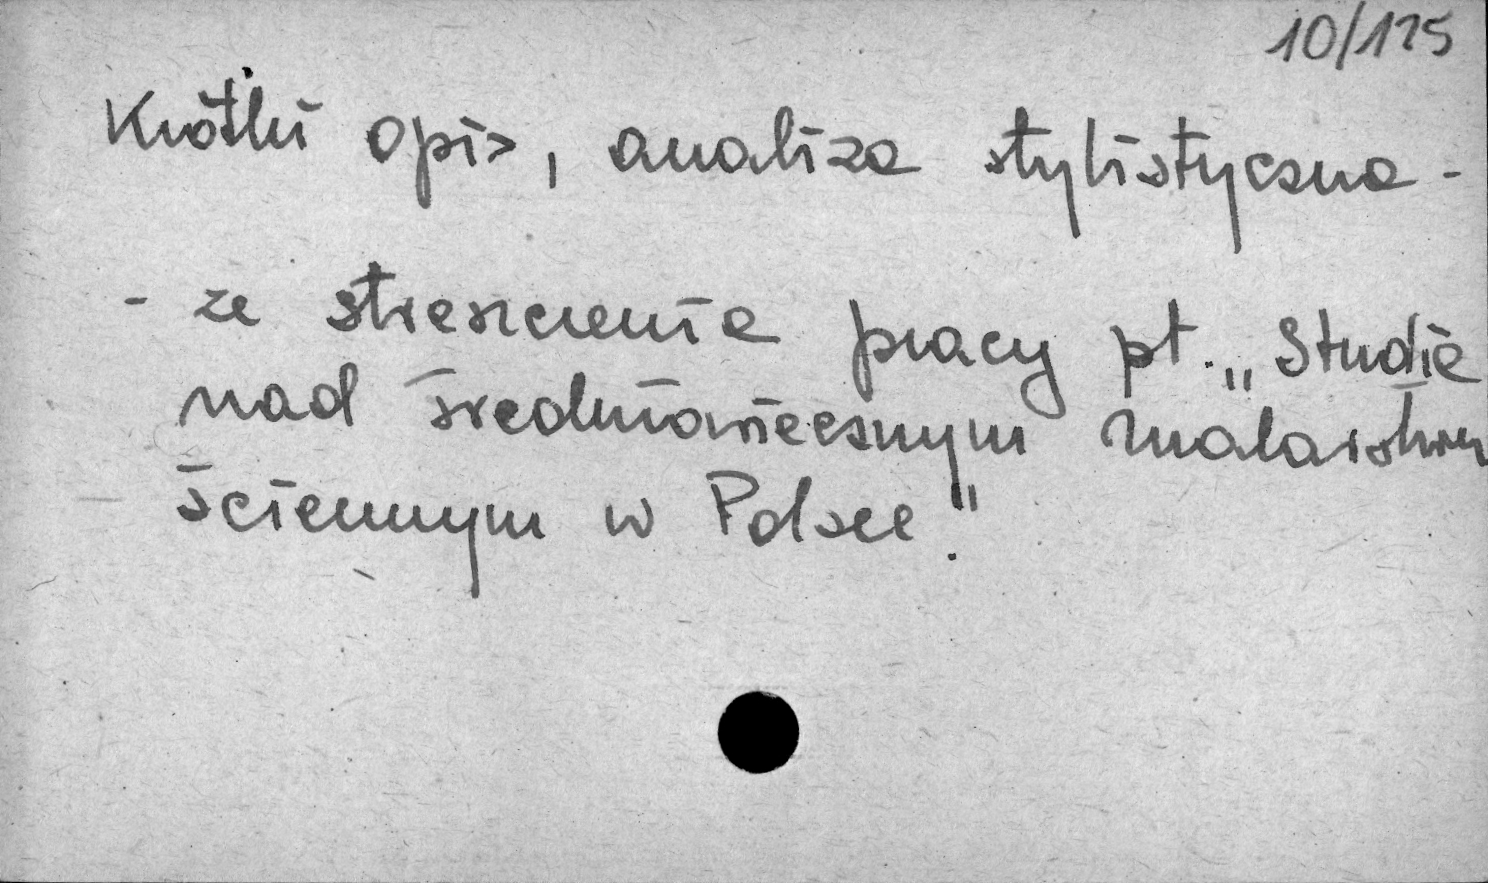 10/125
Krótki opis, analiza stylistyczna -
- ze streszczenia pracy pt. „Studia
nad średniowiecznym malarstwem
ściennym w Polsce".